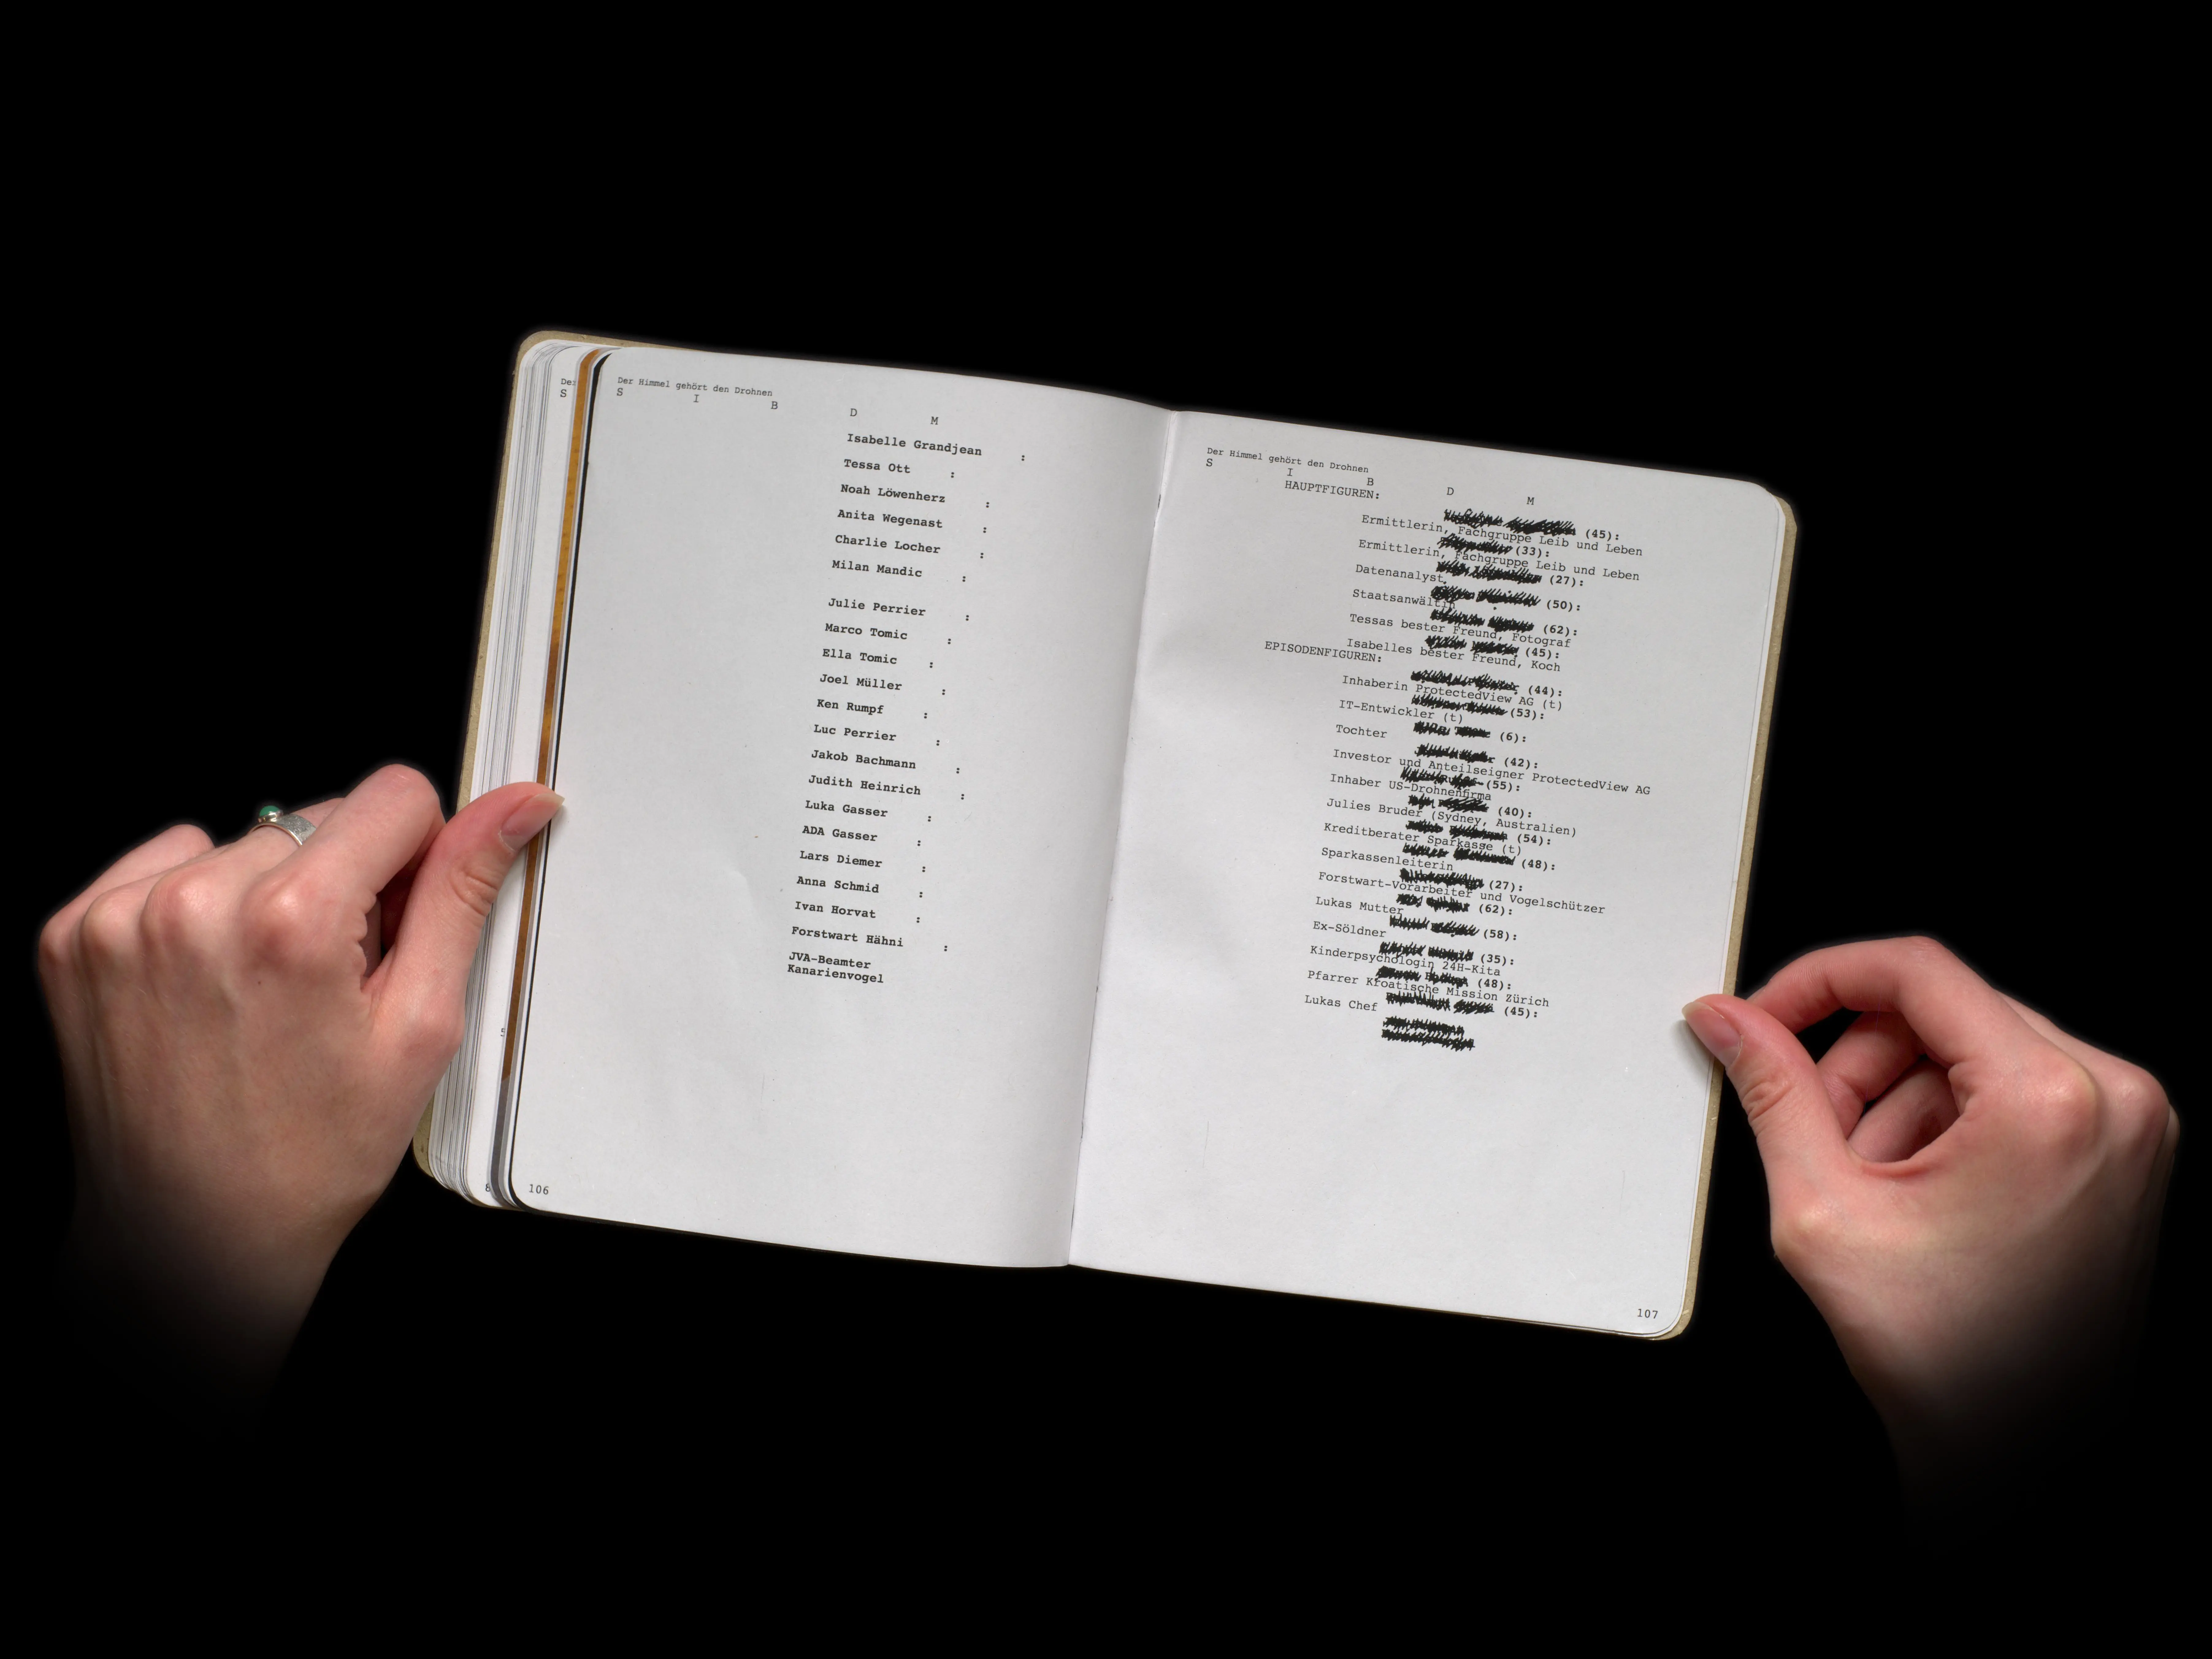 Der Himmel gehört den Drohnen
S I B D M
Isabelle Grandjean :
Tessa Ott :
Noah Löwenherz :
Anita Wegenast :
Charlie Locher :
Milan Mandic :
Julie Perrier :
Marco Tomic :
Ella Tomic :
Joel Müller :
Ken Rumpf :
Luc Perrier :
Jakob Bachmann :
Judith Heinrich :
Luka Gasser :
ADA Gasser :
Lars Diemer :
Anna Schmid :
Ivan Horvat :
Forstwart Hähni :
JVA-Beamter
Kanarienvogel
106
S
Der Himmel gehört den Drohnen
S I B D M
HAUPTFIGUREN:
(45):
Ermittlerin, Fachgruppe Leib und Leben
(33):
Ermittlerin, Fachgruppe Leib und Leben
(27):
Datenanalyst
(50):
Staatsanwältin
(62):
Tessas bester Freund, Fotograf
(45):
Isabelles bester Freund, Koch
EPISODENFIGUREN:
(44):
Inhaberin ProtectedView AG (t)
(53):
IT-Entwickler (t)
(6):
Tochter
(42):
Investor und Anteilseigner ProtectedView AG
(55):
Inhaber US-Drohnenfirma
(40):
Julies Bruder (Sydney, Australien)
(54):
Kreditberater Sparkasse (t)
(48):
Sparkassenleiterin
(27):
Forstwart-Vorarbeiter und Vogelschützer
(62):
Lukas Mutter
(58):
Ex-Söldner
(35):
Kinderpsychologin 24H-Kita
(48):
Pfarrer Kroatische Mission Zürich
(45):
Lukas Chef
107